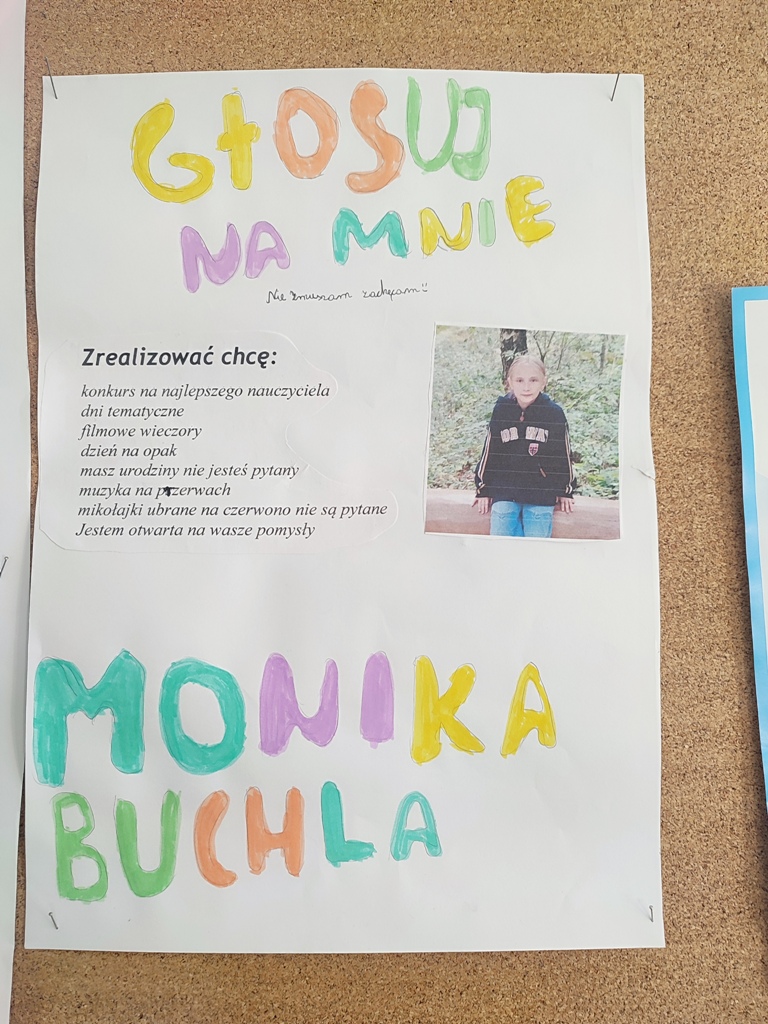 GŁOSUJ
NA MNIE
Nie zmuszam zachęcam
Zrealizować chcę:
konkurs na najlepszego nauczyciela
dni tematyczne
filmowe wieczory
dzień na opak
masz urodziny nie jesteś pytany
muzyka na przerwach
mikołajki ubrane na czerwono nie są pytane
Jestem otwarta na wasze pomysły
MONIKA
BUCHLA